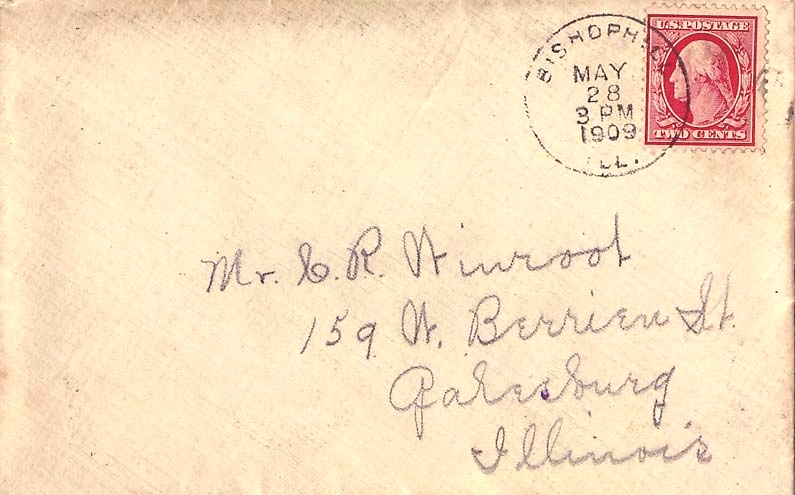 BISHOPHILL
MAY
28
3 PM
1909
ILL.
U.S. POSTAGE
TWO CENTS
Mr. C. R. Winroot
159 W. Berrien St.
Galesburg
Illinois